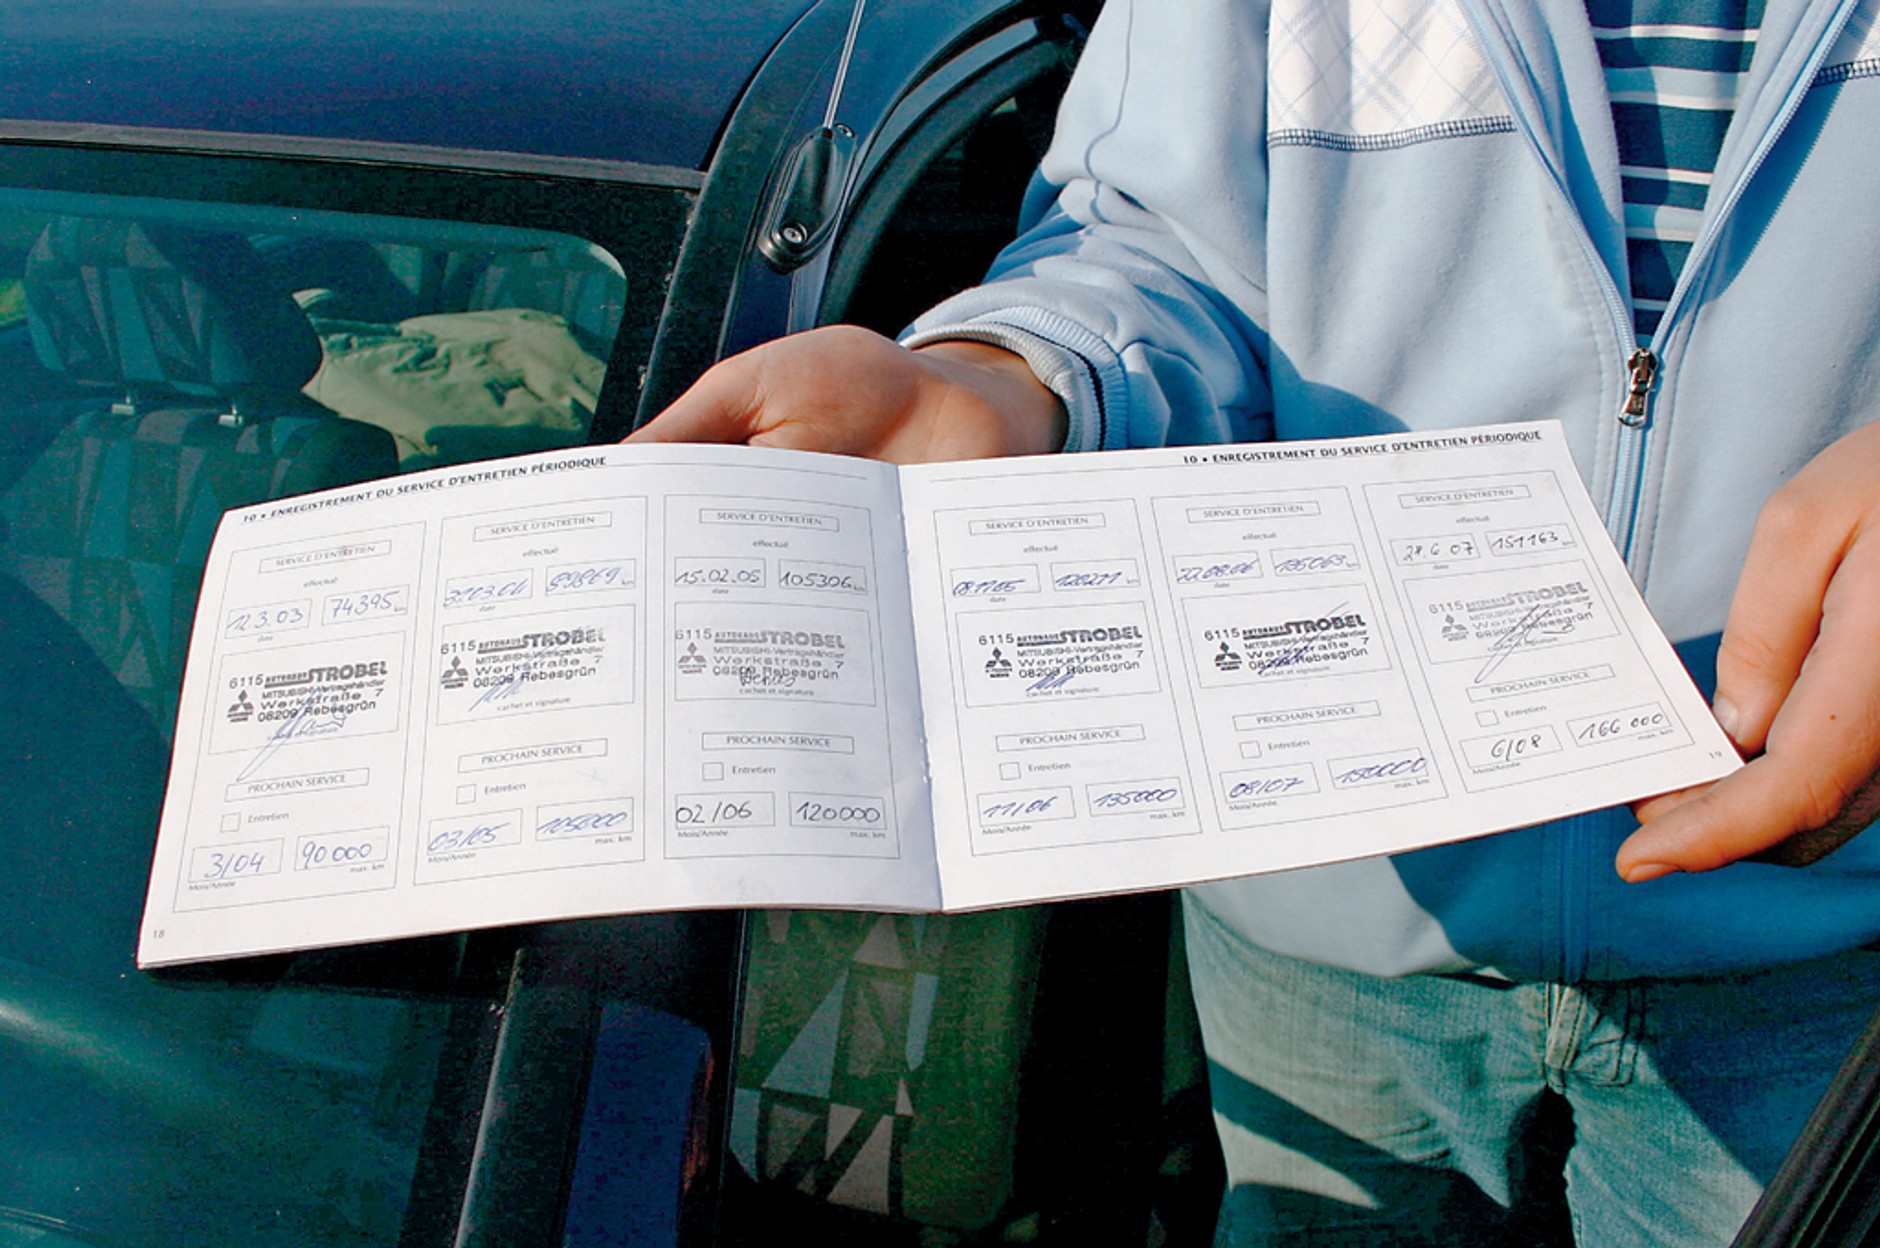 10 • ENREGISTREMENT DU SERVICE D'ENTRETIEN PÉRIODIQUE
SERVICE D'ENTRETIEN
effectué
12.3.03 74395 km
date
6115 AUTOHAUS STROBEL
MITSUBISHI-Vertragshändler
Werkstraße 7
08209 Rebesgrün
cachet et signature
PROCHAIN SERVICE
Entretien
3/04 90 000
Mois/Année max. km
SERVICE D'ENTRETIEN
effectué
89869 km
date
6115 AUTOHAUS STROBEL
MITSUBISHI-Vertragshändler
Werkstraße 7
08209 Rebesgrün
cachet et signature
PROCHAIN SERVICE
Entretien
03/05 105000
Mois/Année max. km
SERVICE D'ENTRETIEN
effectué
15.02.05 105306 km
date
6115 AUTOHAUS STROBEL
MITSUBISHI-Vertragshändler
Werkstraße 7
08209 Rebesgrün
cachet et signature
PROCHAIN SERVICE
Entretien
02/06 120000
Mois/Année max. km
18
10 • ENREGISTREMENT DU SERVICE D'ENTRETIEN PÉRIODIQUE
SERVICE D'ENTRETIEN
effectué
km
date
6115 AUTOHAUS STROBEL
MITSUBISHI-Vertragshändler
Werkstraße 7
08209 Rebesgrün
cachet et signature
PROCHAIN SERVICE
Entretien
11/06 135000
Mois/Année max. km
SERVICE D'ENTRETIEN
effectué
22.08.06 135063 km
date
6115 AUTOHAUS STROBEL
MITSUBISHI-Vertragshändler
Werkstraße 7
08209 Rebesgrün
cachet et signature
PROCHAIN SERVICE
Entretien
08/07 150000
Mois/Année max. km
SERVICE D'ENTRETIEN
effectué
28.6.07 151163 km
date
6115 AUTOHAUS STROBEL
MITSUBISHI-Vertragshändler
Werkstraße 7
08209 Rebesgrün
cachet et signature
PROCHAIN SERVICE
Entretien
6/08 166 000
Mois/Année max. km
19